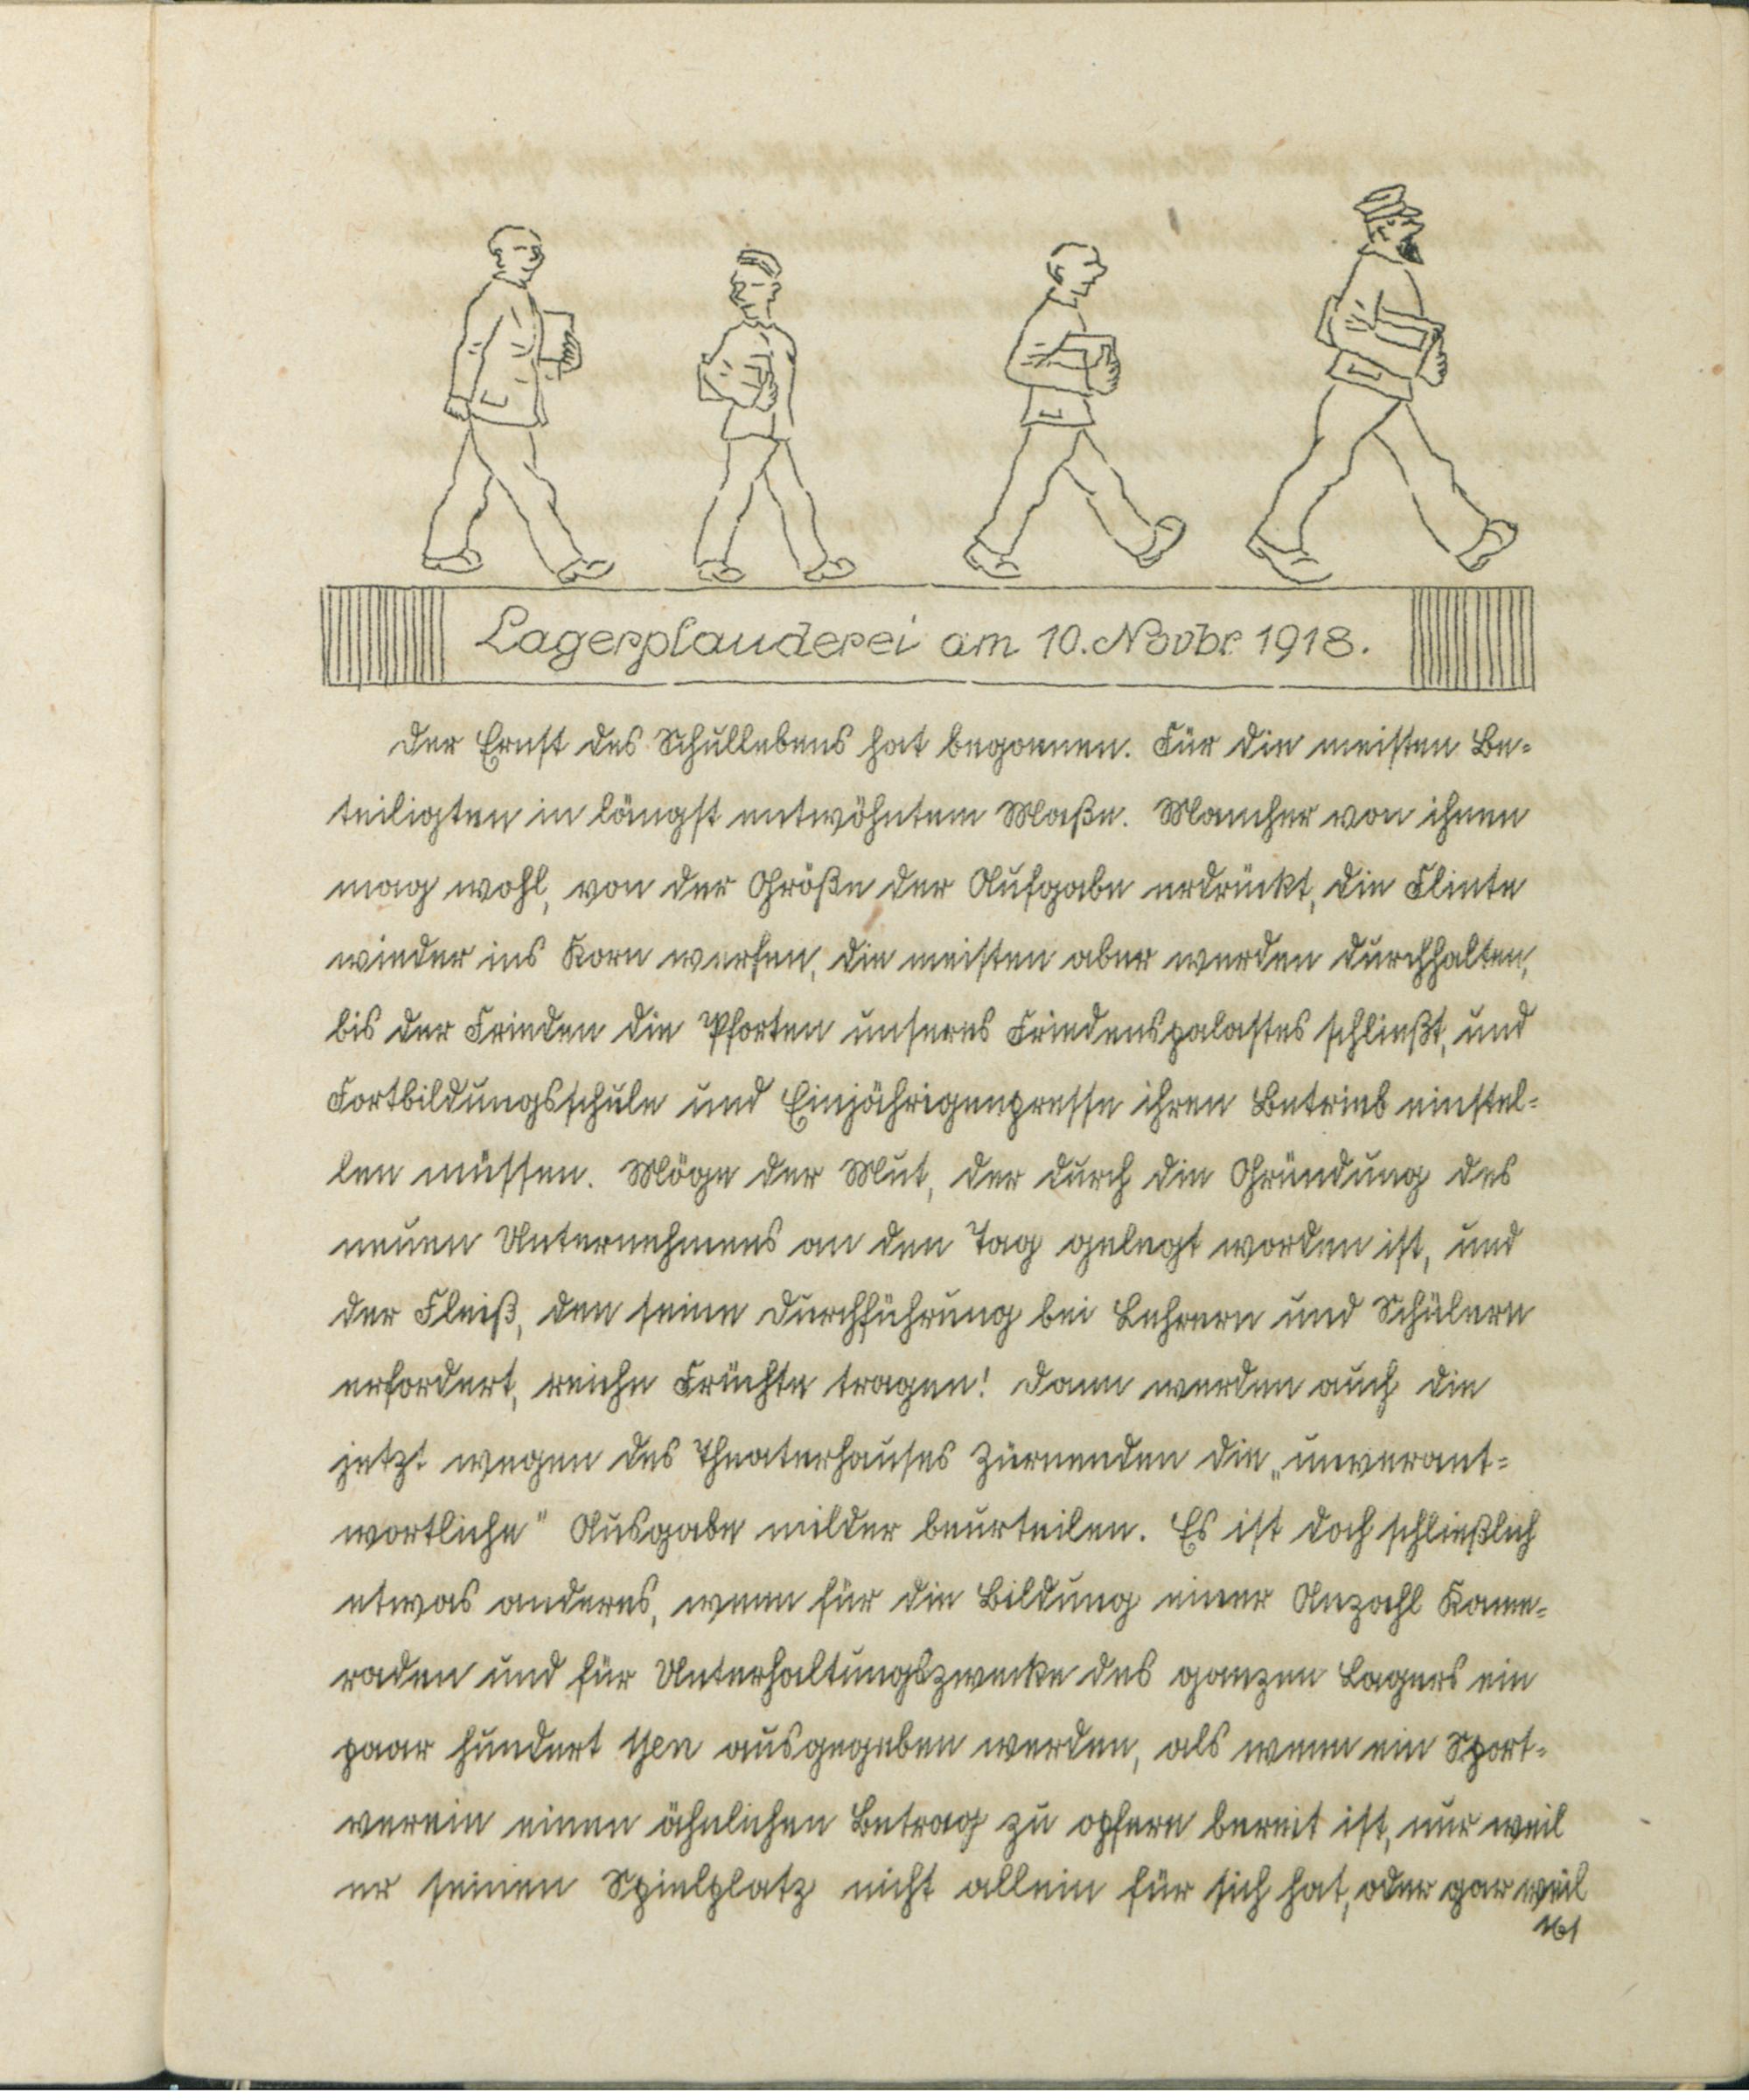 Lagerplauderei am 10. Novbr. 1918.
Der Ernst des Schullebens hat begonnen. Für die meisten Be-
teiligten in längst entwöhntem Maße. Mancher von ihnen
mag wohl, von der Größe der Aufgabe erdrückt, die Flinte
wieder ins Korn werfen, die meisten aber werden durchhalten,
bis der Frieden die Pforten unseres Friedenspalastes schließt, und
Fortbildungsschule und Einjährigenpresse ihren Betrieb einstel-
len müssen. Möge der Mut, der durch die Gründung des
neuen Unternehmens an den Tag gelegt worden ist, und
der Fleiß, den seine Durchführung bei Lehrern und Schülern
erfordert, reiche Früchte tragen! Dann werden auch die
jetzt wegen des Theaterhauses Zürnenden die „unverant-
wortliche" Ausgabe milder beurteilen. Es ist doch schließlich
etwas anderes, wenn für die Bildung einer Anzahl Kame-
raden und für Unterhaltungszwecke des ganzen Lagers ein
paar hundert Yen ausgegeben werden, als wenn ein Sport-
verein einen ähnlichen Betrag zu opfern bereit ist, nur weil
er seinen Spielplatz nicht allein für sich hat, oder gar weil
161